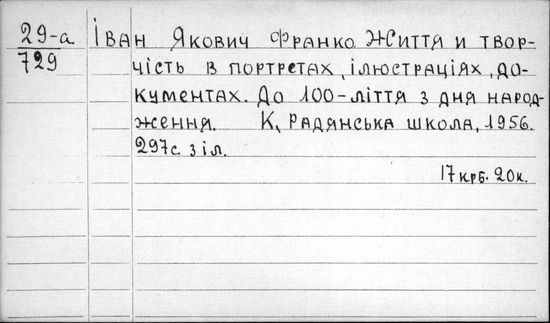 29-а
729
Іван Якович Франко. Життя и твор-
чість в портретах, ілюстраціях, до-
кументах. До 100-ліття з дня народ-
ження. К, Радянська школа, 1956.
297с. з іл.
17 крб. 20к.